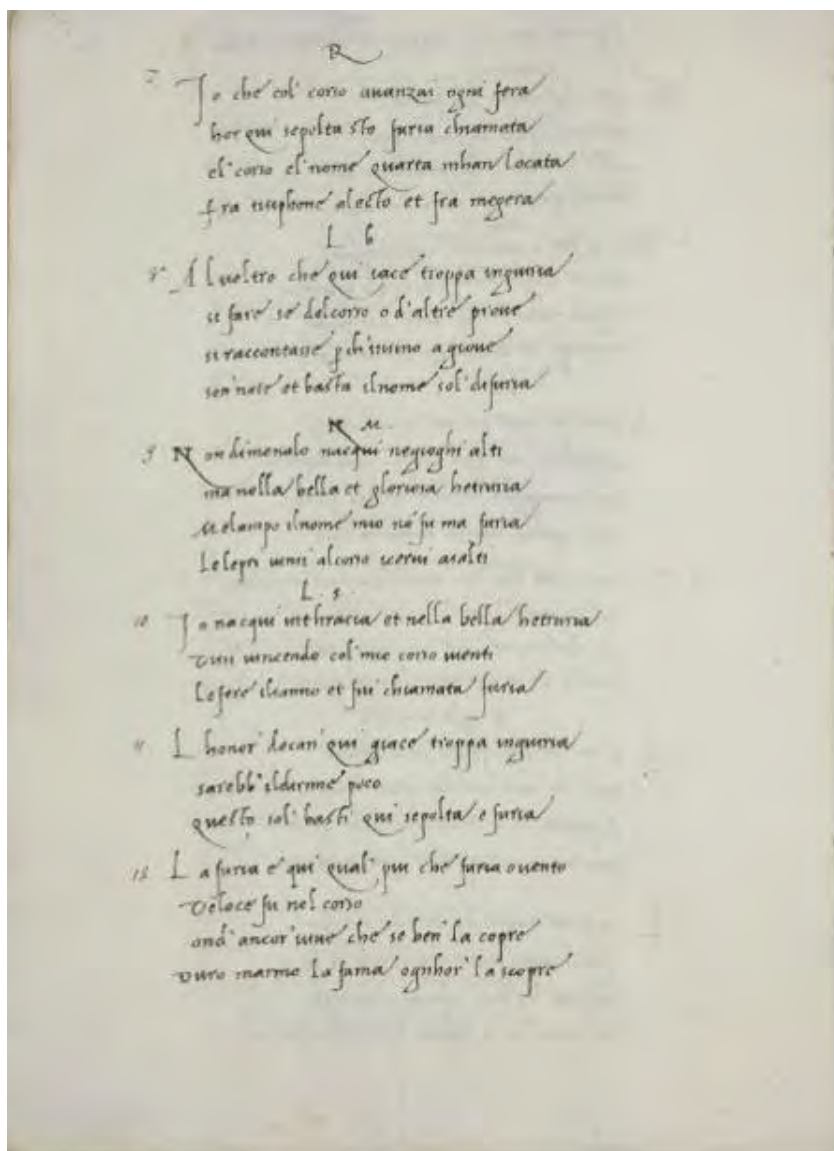 R
7 Io che col' corso auanzai ogni fera
hor qui sepolta sto furia chiamata
el' corso el' nome quarta mhan locata
fra tisiphone alecto et fra megera
L b
8 Al ueltro che qui iace troppa ingiuria
si fare se del corso o d'altre proue
si raccontasse ꝑ ch' insino a gioue
son' note et basta il nome sol' di furia
N M.
9 Non di menalo nacqui ne gioghi alti
ma nella bella et gloriosa hetruria
Melampo il nome mio nō fu ma furia
Le lepri uinsi al corso i cerui asalti
L. s.
10 Io nacqui in thracia et nella bella hetruria
Vissi uincendo col' mio corso uenti
Le fere il sanno et fui chiamata furia
11 L honor' de can' qui giace troppa ingiuria
sarebb' il dirne poco
questo sol' basti qui sepolta e furia
12 La furia e qui qual' piu che furia o uento
Veloce fu nel corso
ond' ancor' uiue che se ben' la copre
Duro marmo la fama ognhor' la scopre